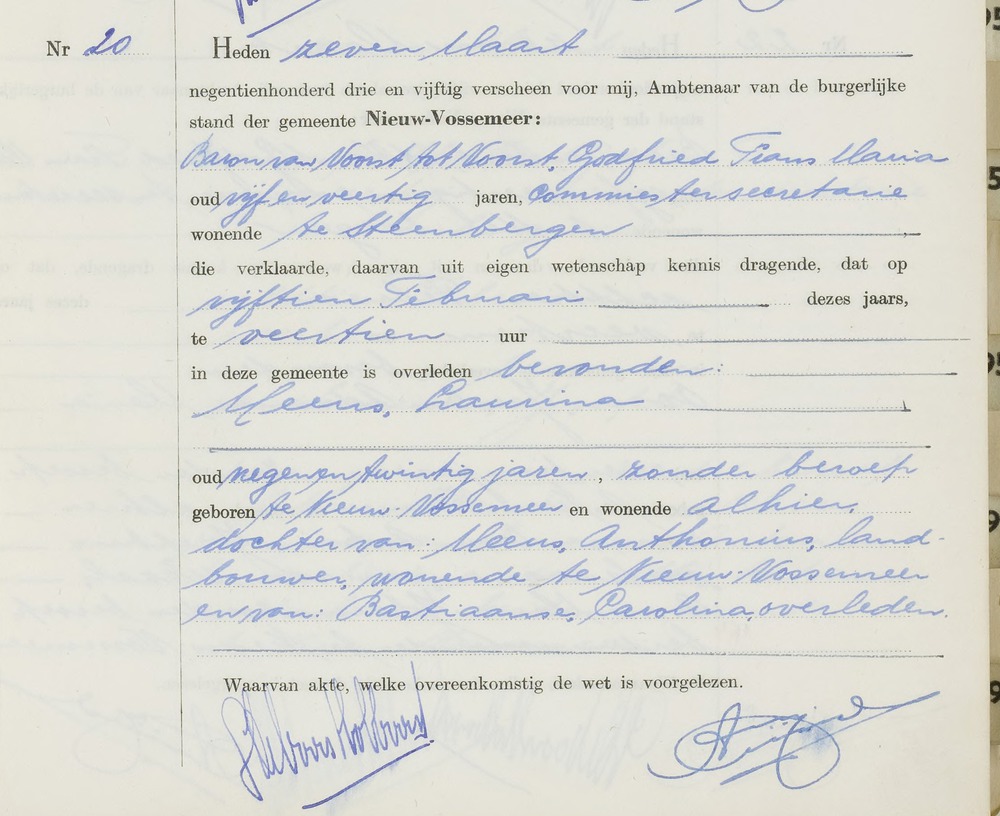 Nr 20
Heden zeven Maart
negentienhonderd drie en vijftig verscheen voor mij, Ambtenaar van de burgerlijke
stand der gemeente Nieuw-Vossemeer:
Baron van Voorst tot Voorst, Godfried Frans Maria
oud vijf en veertig jaren, Commies ter secretarie
wonende te Steenbergen
die verklaarde, daarvan uit eigen wetenschap kennis dragende, dat op
vijftien Februari dezes jaars,
te veertien uur
in deze gemeente is overleden bevonden:
Meeus, Laurina
oud negenentwintig jaren, zonder beroep
geboren te Nieuw-Vossemeer en wonende alhier,
dochter van: Meeus, Anthonius, land-
bouwer, wonende te Nieuw-Vossemeer
en van: Bastiaanse, Carolina, overleden.
Waarvan akte, welke overeenkomstig de wet is voorgelezen.